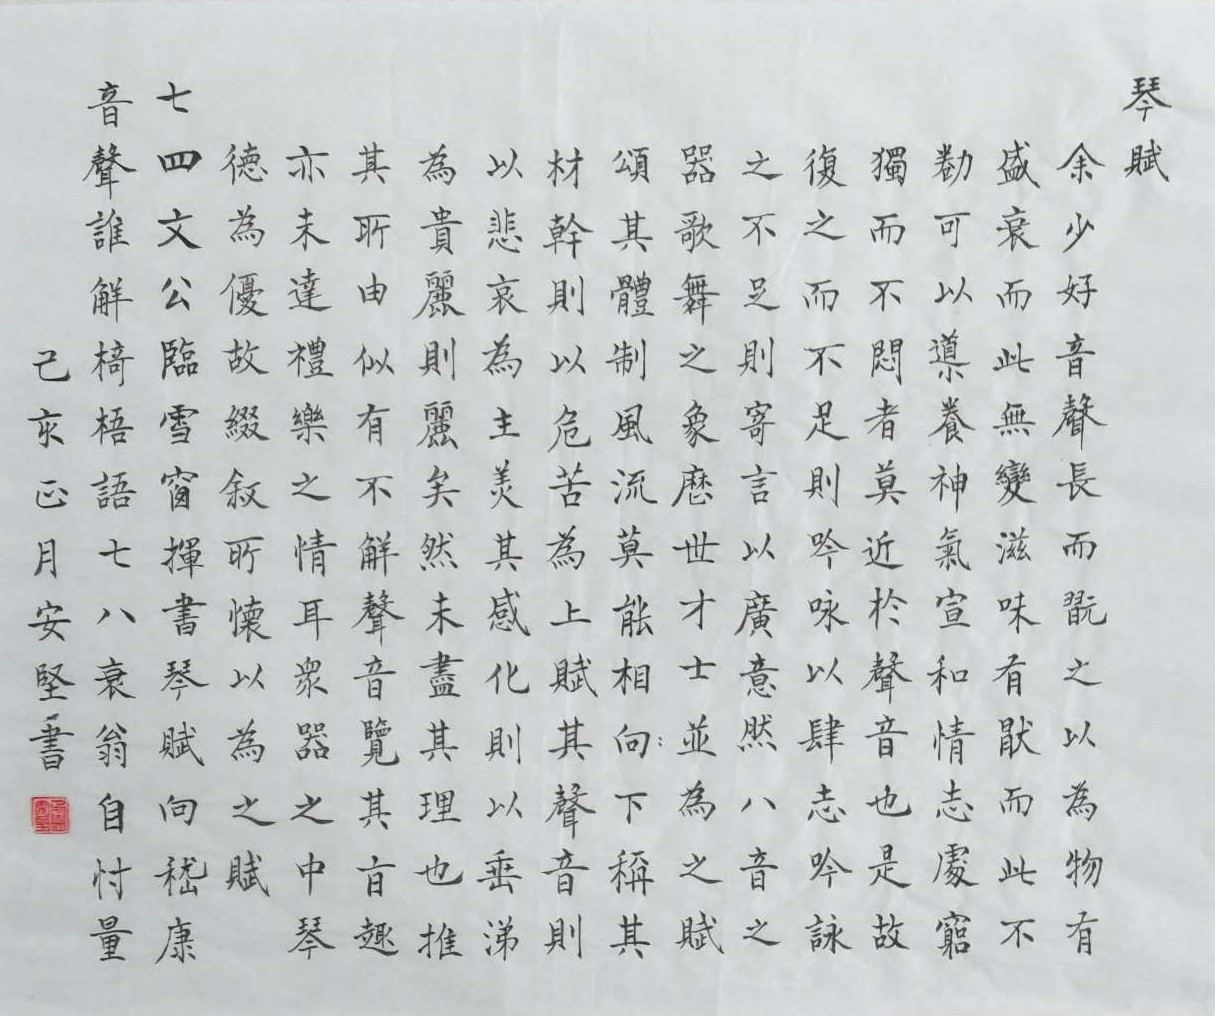 琴賦
余少好音聲長而翫之以為物有
盛衰而此無變滋味有猒而此不
勌可以導養神氣宣和情志處窮
獨而不悶者莫近於聲音也是故
復之而不足則吟咏以肆志吟詠
之不足則寄言以廣意然八音之
器歌舞之象歷世才士並為之賦
頌其體制風流莫能相向下稱其
材幹則以危苦為上賦其聲音則
以悲哀為主羙其感化則以垂涕
為貴麗則麗矣然未盡其理也推
其所由似有不解聲音覽其旨趣
亦未達禮樂之情耳眾器之中琴
德為優故綴敘所懷以為之賦
七四文公臨雪窗揮書琴賦向嵇康
音聲誰解椅梧語七八衰翁自忖量
己亥正月安堅書